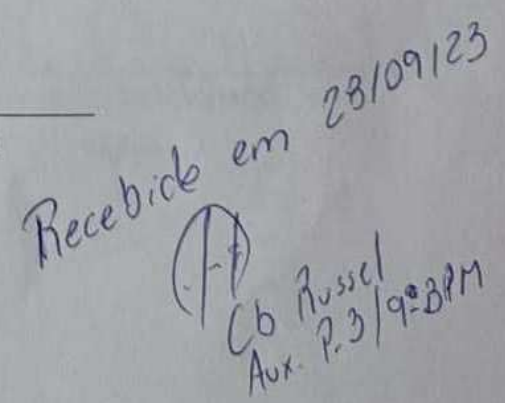 Recebido em 28/09/23
Cb Russel
Aux. P.3/9ºBPM